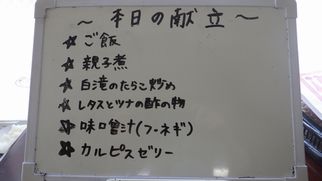 ～本日の献立～
☆ご飯
☆親子煮
☆白滝のたらこ炒め
☆レタスとツナの酢の物
☆味噌汁(フ・ネギ)
☆カルピスゼリー